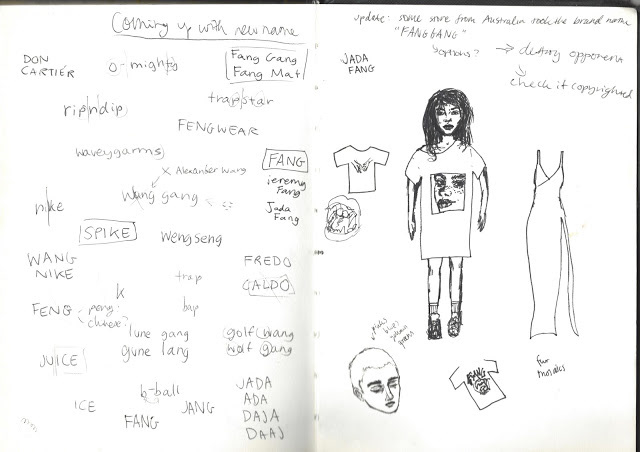 Coming up with new name
DON
CARTIÉR
O-mighty
Fang Gang
Fang Mat
ripndip
trapstar
FENGWEAR
waveygarms
x Alexander Wang
FANG
jeremy
Fang
Wang gang
Jada
Fang
nike
SPIKE
wengseng
WANG
NIKE
FREDO
trap
CALDO
K
FENG
peng?
chinese?
bap
lune gang
gune lang
golf wang
wolf gang
JUICE
b-ball
ICE
FANG
JANG
JADA
ADA
DAJA
DAAJ
update: some store from Australia took the brand name
"FANGGANG"
options?
→ destroy opponent
check if copyrighted
JADA
FANG
pink
blue
yellow
green
FANG
fur
mosaics